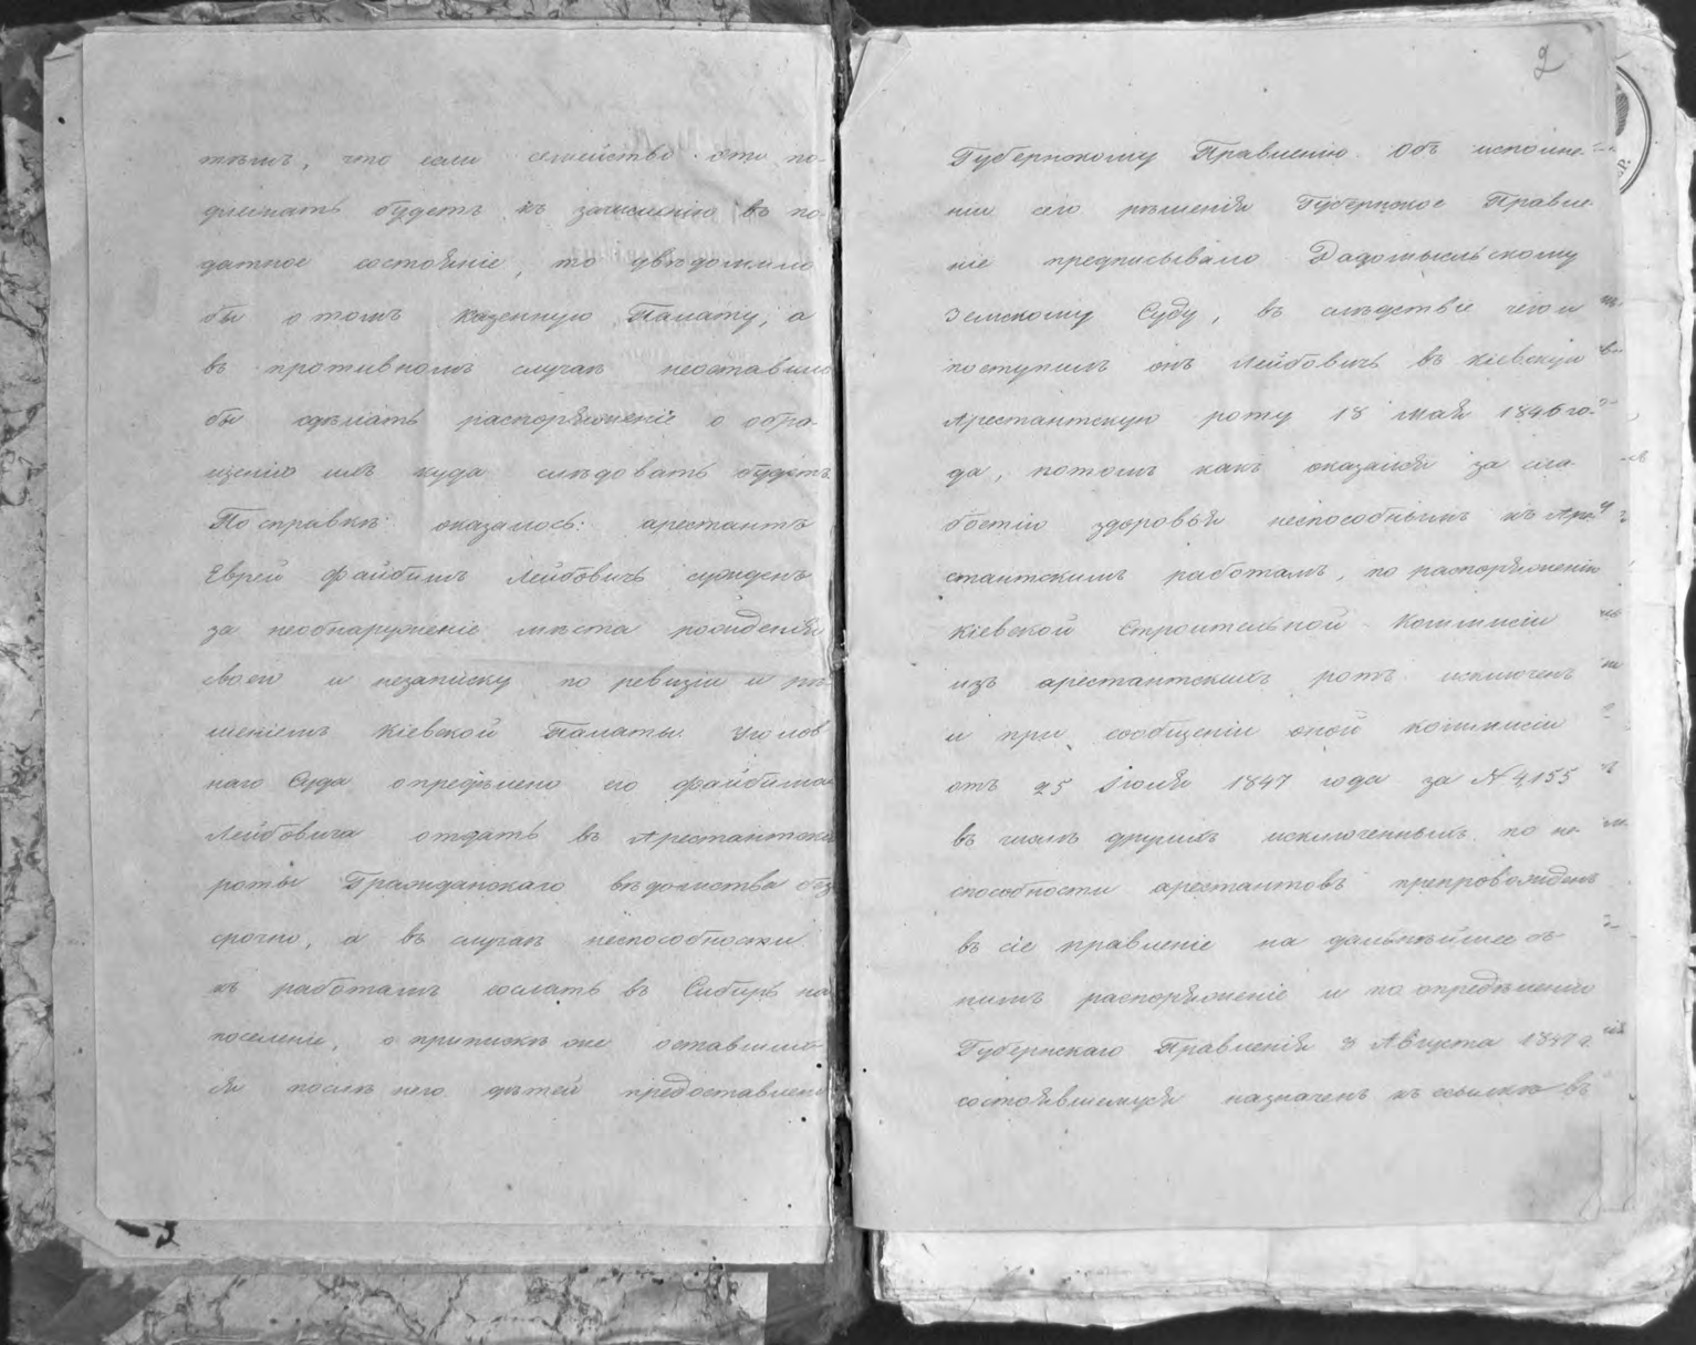 тѣмъ, что если семейство это по-
длежать будетъ къ зачисленію въ по-
датное состояніе, то увѣдомило
бы о томъ Казенную Палату, а
въ противномъ случаѣ неоставило
бы сдѣлать распоряженіе о обра-
щеніи ихъ куда слѣдовать будетъ.
По справкѣ оказалось: арестантъ
Еврей Файбишъ Лейбовичъ сужденъ
за необнаруженіе мѣста рожденія
своего и незаписку по ревизіи и рѣ-
шеніемъ Кіевской Палаты Уголов
наго Суда опредѣлено его Файбиша
Лейбовича отдать въ Арестантскія
роты Гражданскаго вѣдомства без
срочно, а въ случаѣ неспособности
къ работамъ сослать въ Сибирь на
поселеніе, о припискѣ же оставших-
ся послѣ него дѣтей предоставлено
2
Губернскому Правленію. Объ исполне-
ніи сего рѣшенія Губернское Правле-
ніе предписывало Радомысльскому
Земскому Суду, въ слѣдствіе чего и
поступилъ онъ Лейбовичъ въ Кіевскую
Арестантскую роту 18 Мая 1846 го-
да, потомъ какъ оказался за сла-
бостію здоровья неспособнымъ къ Аре-
стантскимъ работамъ, по распоряженію
Кіевской Строительной Коммисіи
изъ арестантскихъ ротъ исключенъ
и при сообщеніи оной коммисіи
отъ 25 Іюля 1847 года за № 4,155
въ числѣ другихъ исключенныхъ по не-
способности арестантовъ препровожденъ
въ сіе правленіе на дальнѣйшее съ
нимъ распоряженіе и по опредѣленію
Губернскаго Правленія 8 Августа 1847 г.
состоявшемуся назначенъ къ ссылкѣ въ